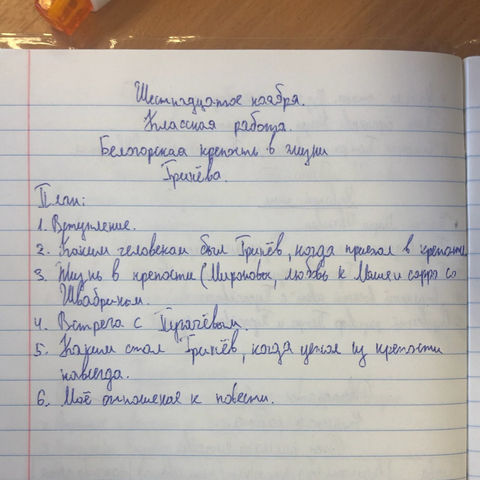 Шестнадцатое ноября.
Классная работа.
Белогорская крепость в жизни
Гринёва.
План:
1. Вступление.
2. Каким человеком был Гринёв, когда приехал в крепость
3. Жизнь в крепости (Мироновы, любовь к Маше и ссора со
Швабриным.
4. Встреча с Пугачёвым.
5. Каким стал Гринёв, когда уехал из крепости
навсегда.
6. Моё отношение к повести.